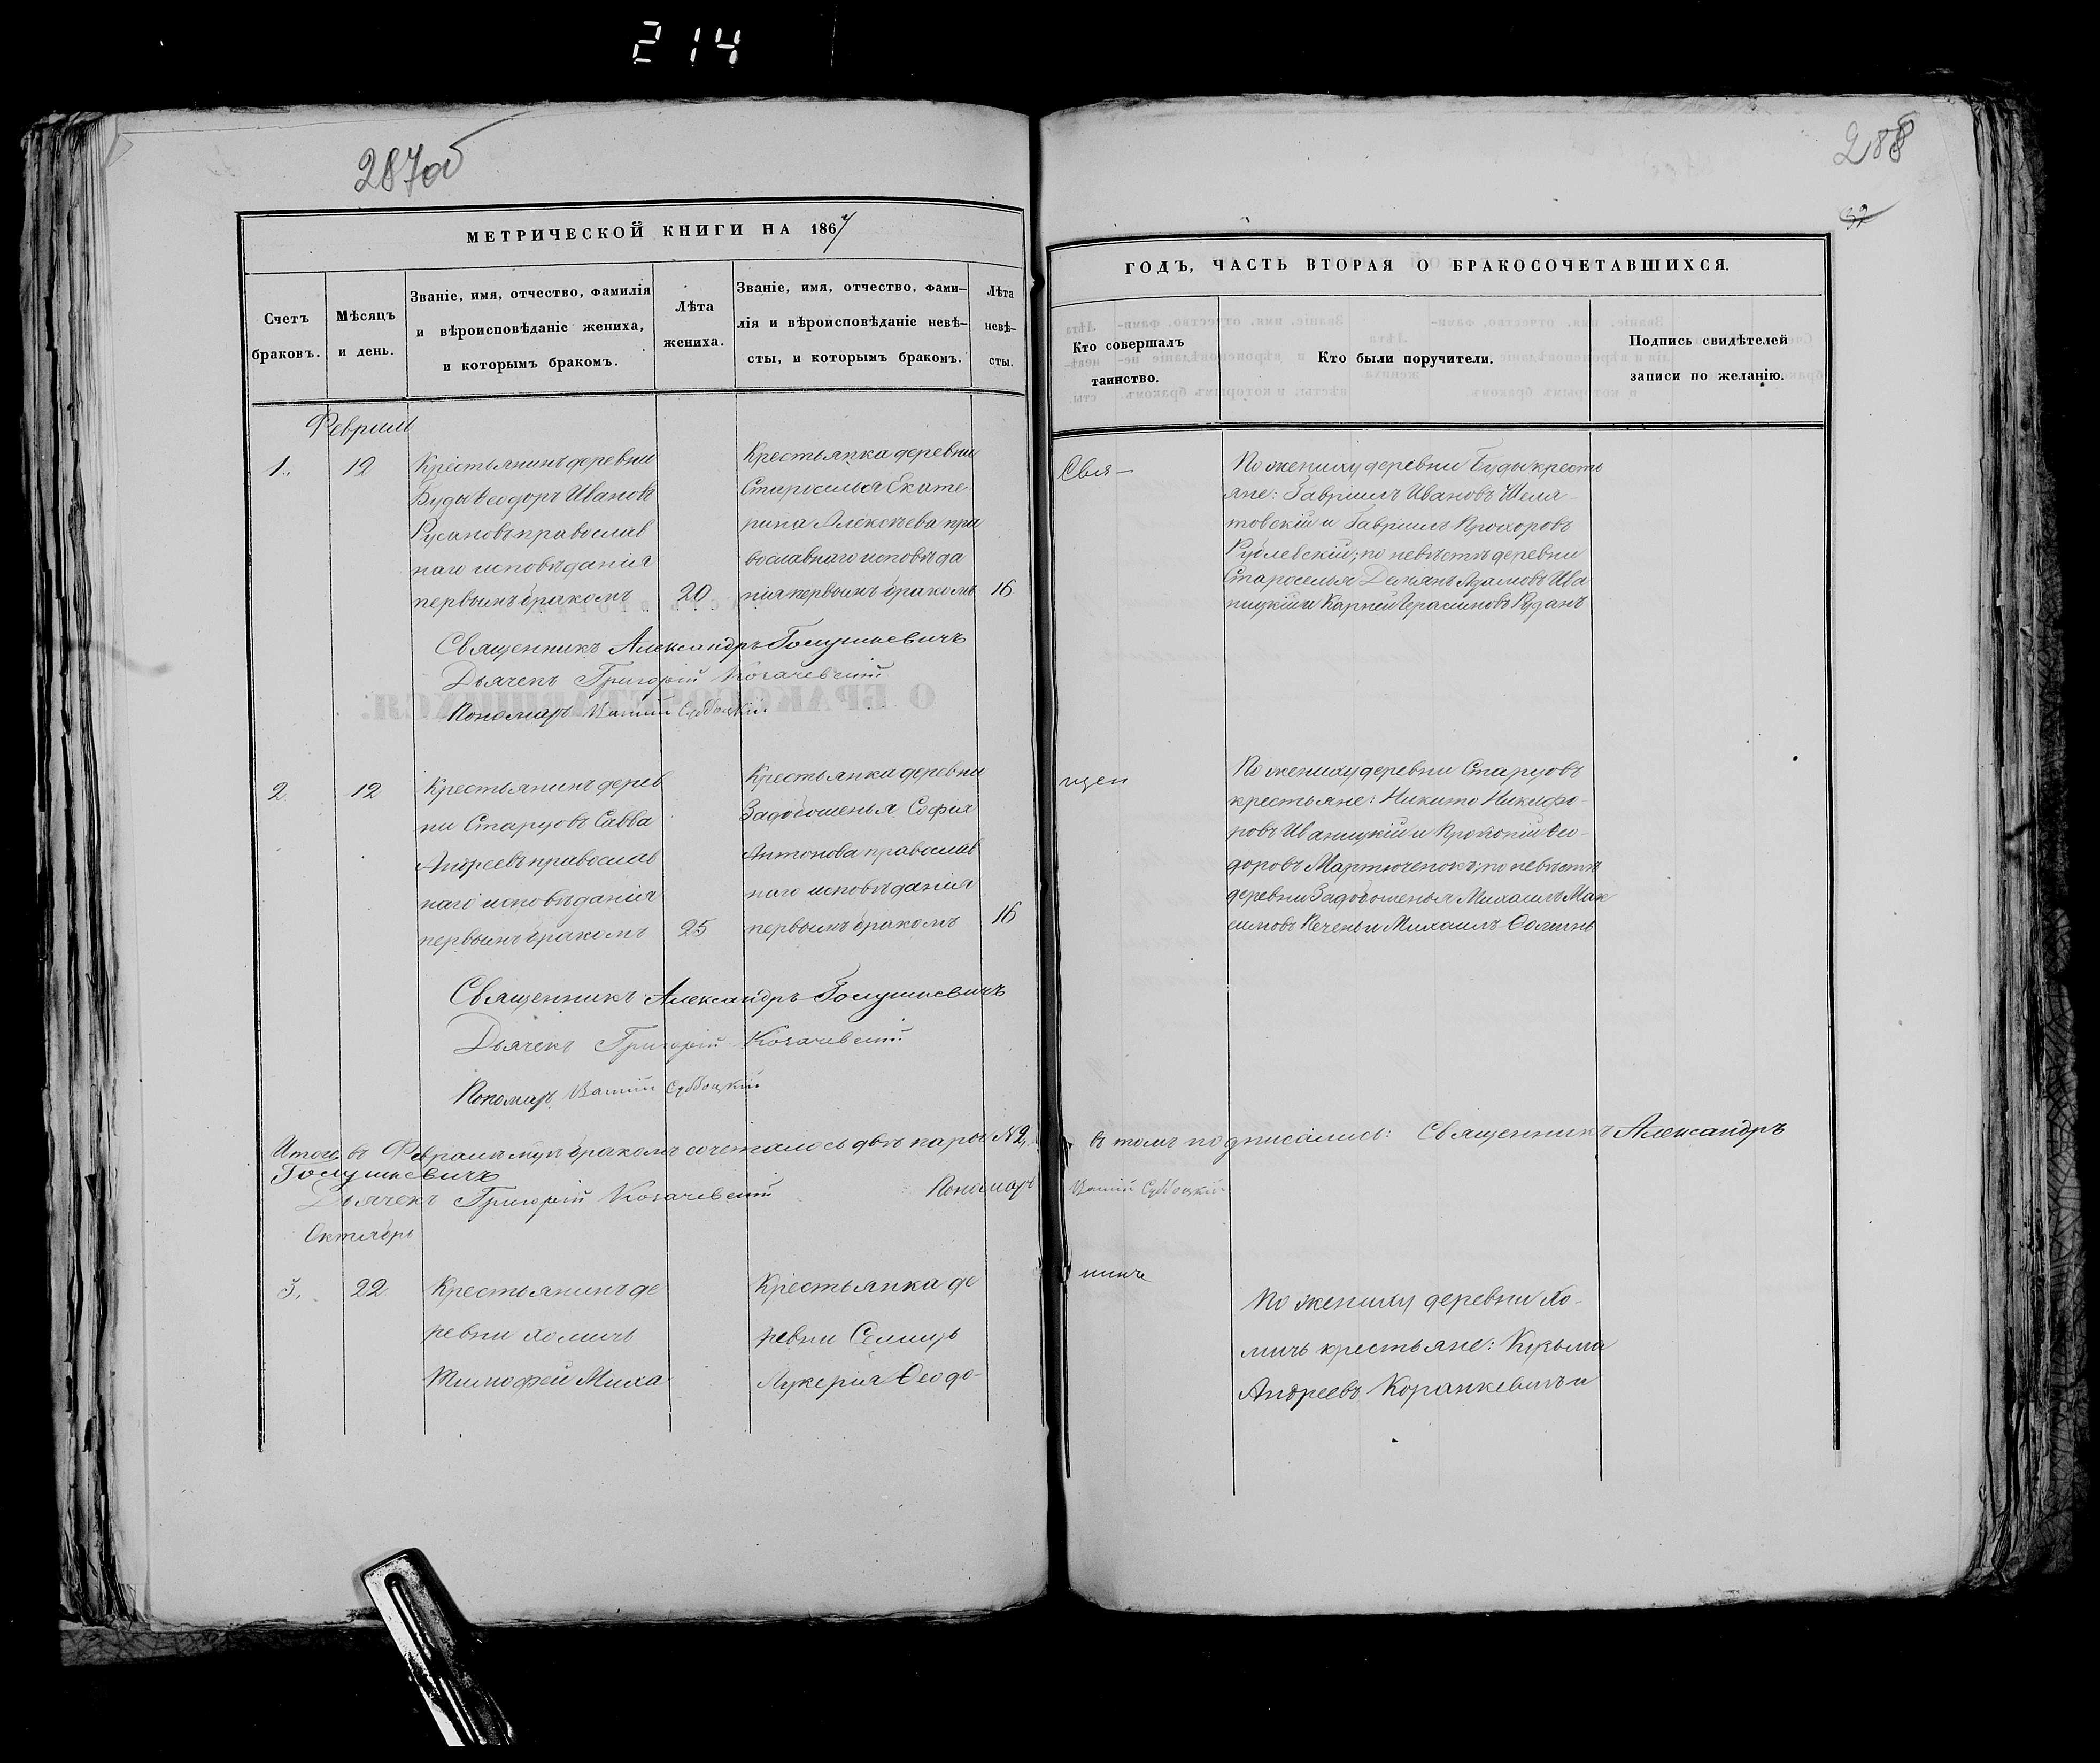 214
287об
МЕТРИЧЕСКОЙ КНИГИ НА 1867
Счетъ
браковъ.
Мѣсяцъ
и день.
Званіе, имя, отчество, фамилія
и вѣроисповѣданіе жениха,
и которымъ бракомъ.
Лѣта
жениха.
Званіе, имя, отчество, фами-
лія и вѣроисповѣданіе невѣ-
сты, и которымъ бракомъ.
Лѣта
невѣ-
сты.
Февраль
1.
12
Крестьянинъ деревни
Буды Ѳеодоръ Ивановъ
Русановъ православ
наго исповѣданія
первымъ бракомъ
20
Крестьянка деревни
Староселья Екате
рина Алексѣева пра
вославнаго исповѣда
нія первымъ бракомъ
16
Священникъ Александръ
Дьячекъ Григорій Козачевскій
Пономарь Субоцкій
2
12
Крестьянинъ дерев
ни Старцовъ Савва
Андреевъ православ
наго исповѣданія
первымъ бракомъ
25
Крестьянка деревни
София
Антонова православ
наго исповѣданія
первымъ бракомъ
16
Священникъ Александръ
Дьячекъ Григорій Козачевскій
Пономарь Субоцкій
Итого въ Февралѣ бракомъ сочеталось двѣ пары N2,
Дьячекъ Григорій Козачевскій Пономарь
Октябрь
3.
22
Крестьянинъ де
ревни Хомичь
Тимофей Миха
Крестьянка де
ревни Селищь
Лукерія Ѳеодо-
288
32
ГОДЪ, ЧАСТЬ ВТОРАЯ О БРАКОСОЧЕТАВШИХСЯ.
Кто совершалъ
таинство.
Кто были поручители.
Подпись свидѣтелей
записи по желанію.
Свя-
По жениху деревни Буды кресть
яне: Гавріилъ Ивановъ Шеля
товскій и Гавріилъ Прохоровъ
Рублевскій; по невѣстѣ деревни
Староселья Демьянъ Адамовъ Ива
ницкій и Карпей Герасимовъ Руданъ
щен
По жениху деревни Старцовъ
крестьяне: Никита Никифо-
ровъ Иваницкій и Прокопій Ѳео-
доровъ Мартюченокъ; по невѣстѣ
деревни Михаилъ Мак
симовъ Печень и Михаилъ
въ томъ подписались: Священникъ Александръ
Субоцкій
никъ
По жениху деревни Хо-
мичь крестьяне: Кузьма
Андреевъ Коранкевичъ и